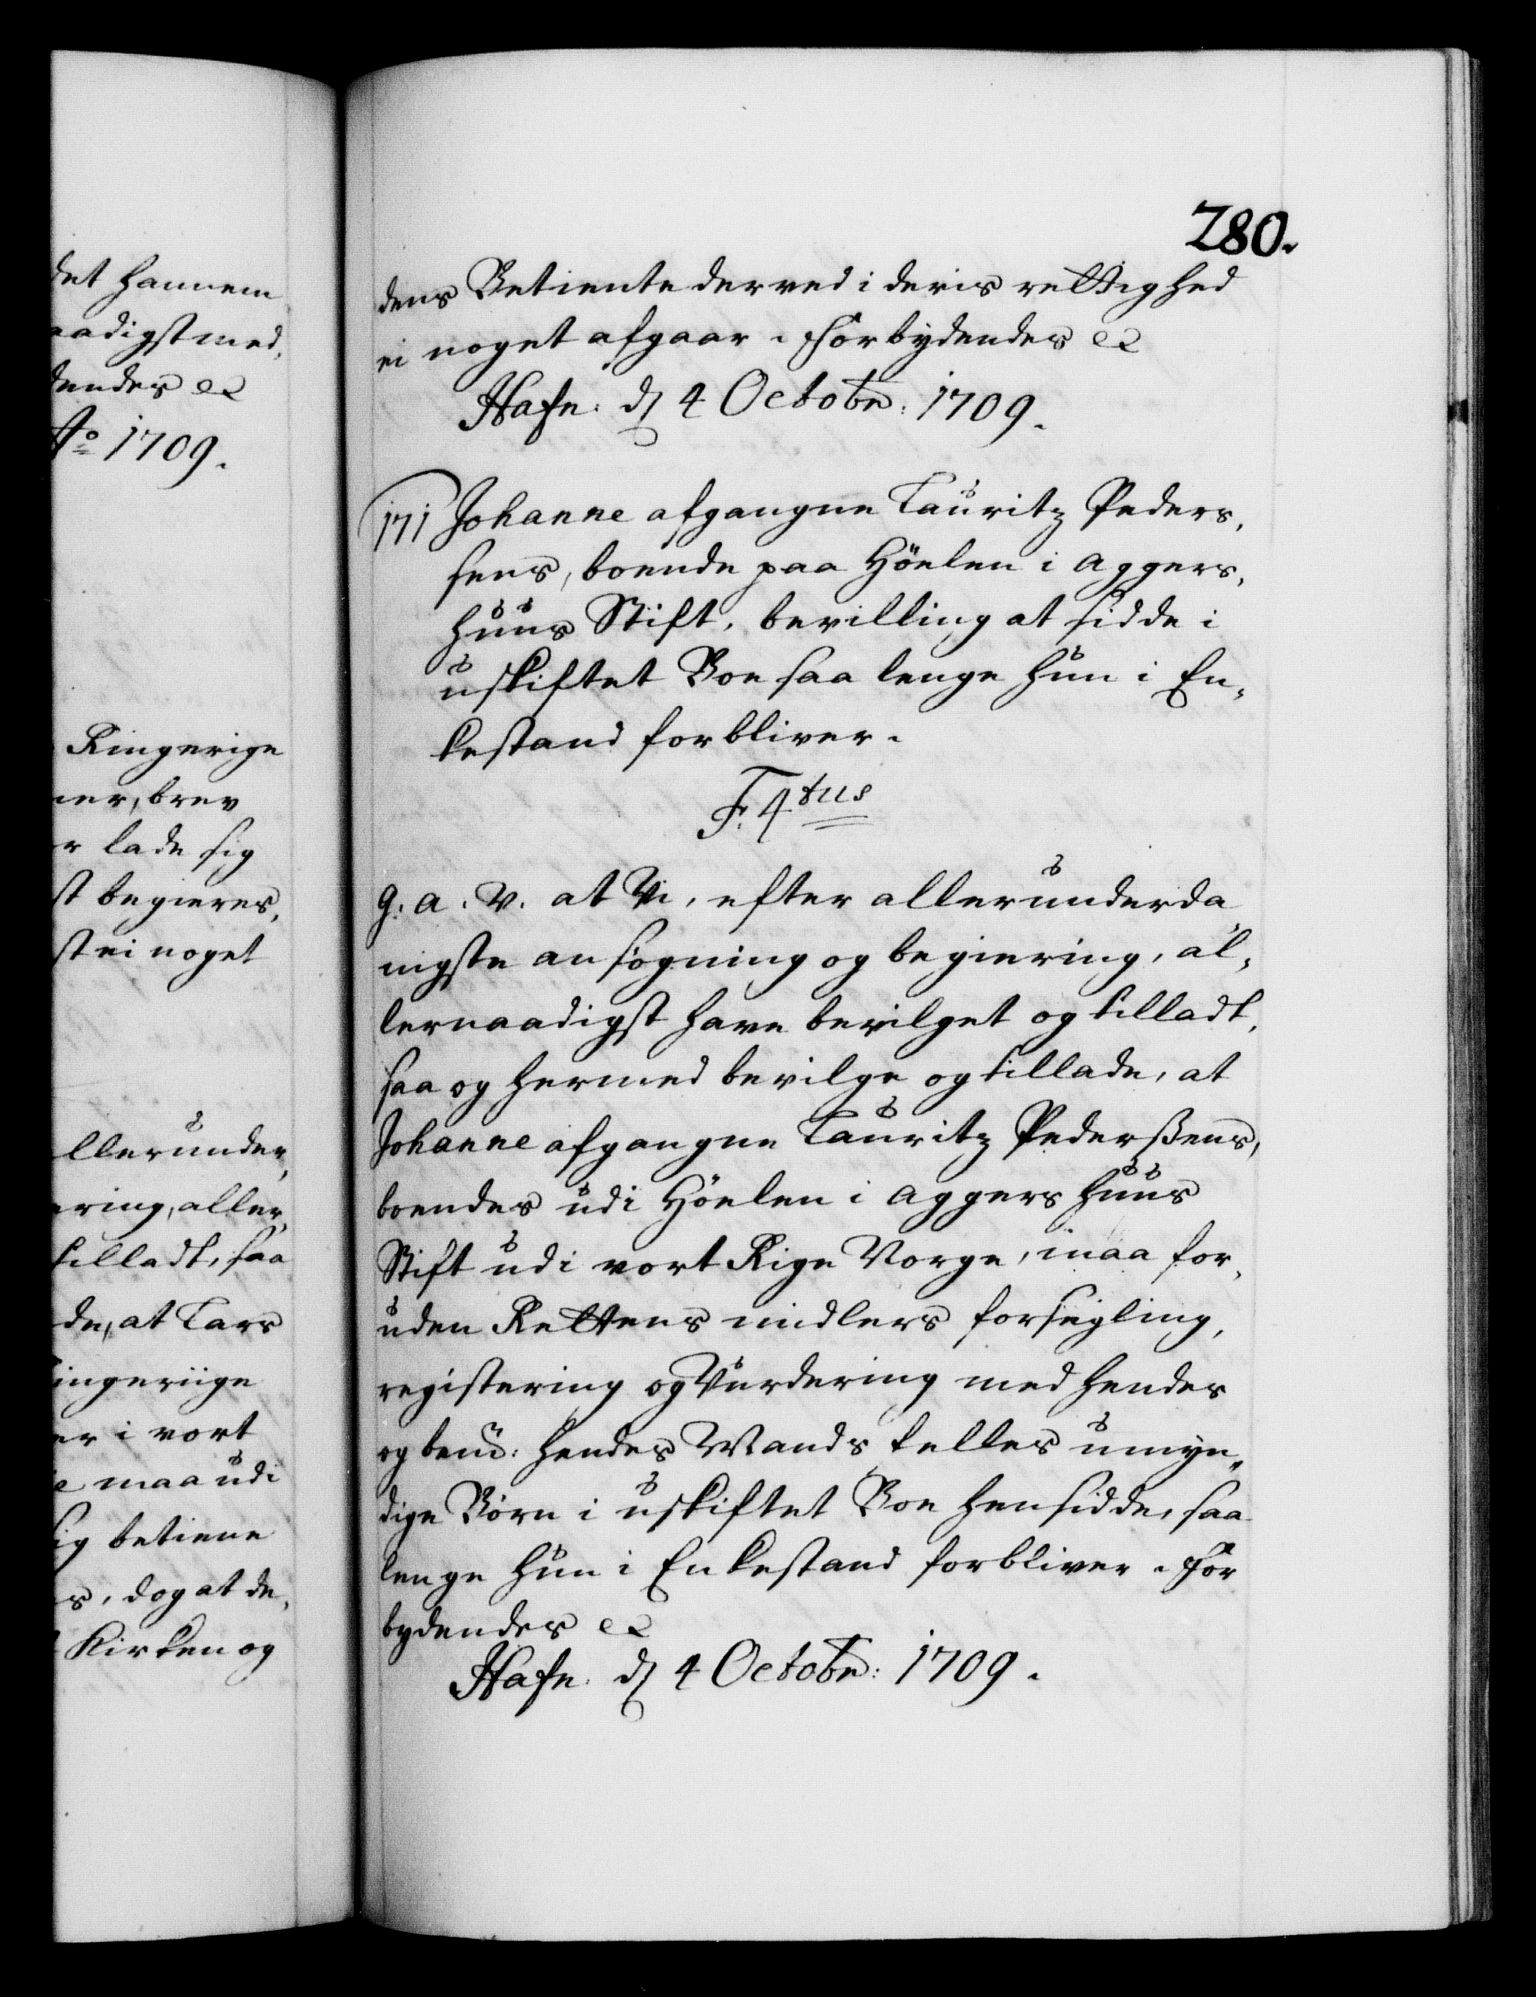 det hannem
aadigst med,
dendes &c
Ao 1709.
Ringerige
ner, brev
r lade sig
st begieres,
st ei noget
llerunder,
ring, aller,
tilladt, saa
de, at Lars
ingeriige
er i vort
e maa udi
sig betiene
s, dog at de,
Kirken og
280.
dens Betiente derved i deris rettighed
ei noget afgaar. Forbydendes &c
Hafn: d 4 Octobr: 1709.
171 Johanne afgangne Lauritz Peders,
sens, boende paa Höelen i Aggers,
huus Stift, bevilling at sidde i
uskiftet Boe saa lenge hun i En,
kestand forbliver.
F. 4tus
G. A. V. at Vi, efter allerunderda,
nigste ansøgning og begiering, al,
lernaadigst have bevilget og tilladt,
saa og hermed bevilge og tillade, at
Johanne afgangne Lauritz Pederssens,
boendes udi Höelen i Aggershuus
Stift udi vort Rige Norge, maa for,
uden Rettens midlers forsegling,
registering og Vurdering med hendes
og bem: hendes Mands felles umyn,
dige Børn i uskiftet Boe hensidde, saa
lenge hun i Enkestand forbliver. For
bydendes &c
Hafn: d 4 Octobr: 1709.